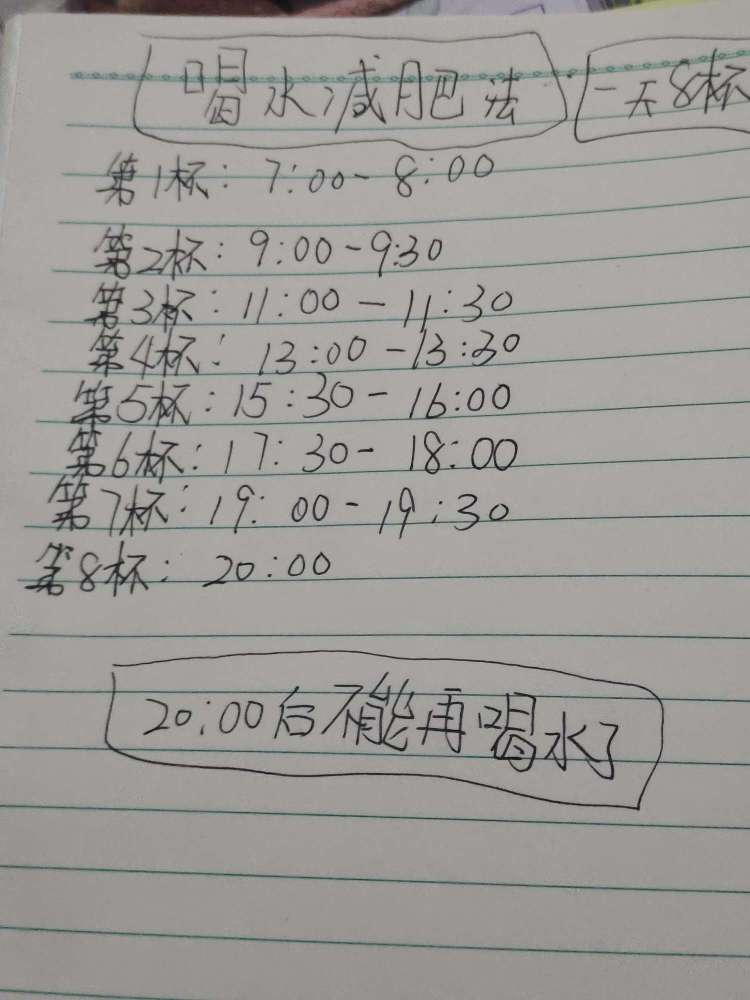 喝水减肥法 一天8杯
第1杯：7:00-8:00
第2杯：9:00-9:30
第3杯：11:00-11:30
第4杯：13:00-13:30
第5杯：15:30-16:00
第6杯：17:30-18:00
第7杯：19:00-19:30
第8杯：20:00
20:00后不能再喝水了